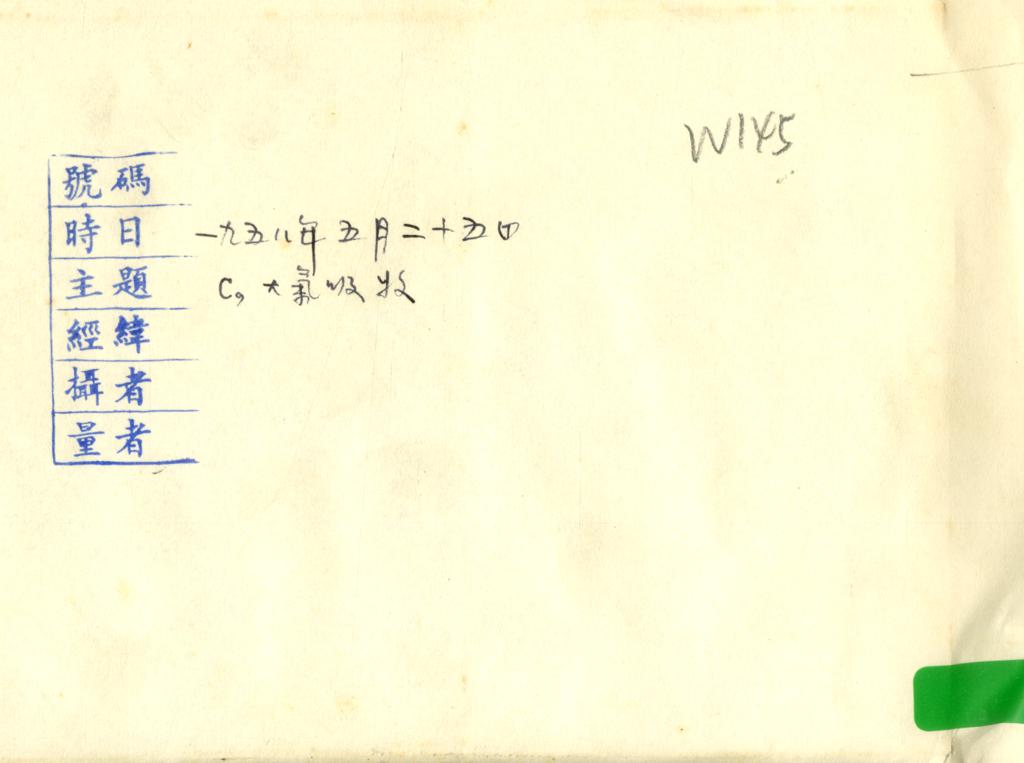 W145
號碼
時日 一九五八年五月二十五日
主題 C9 大氣吸收
經緯
攝者
量者